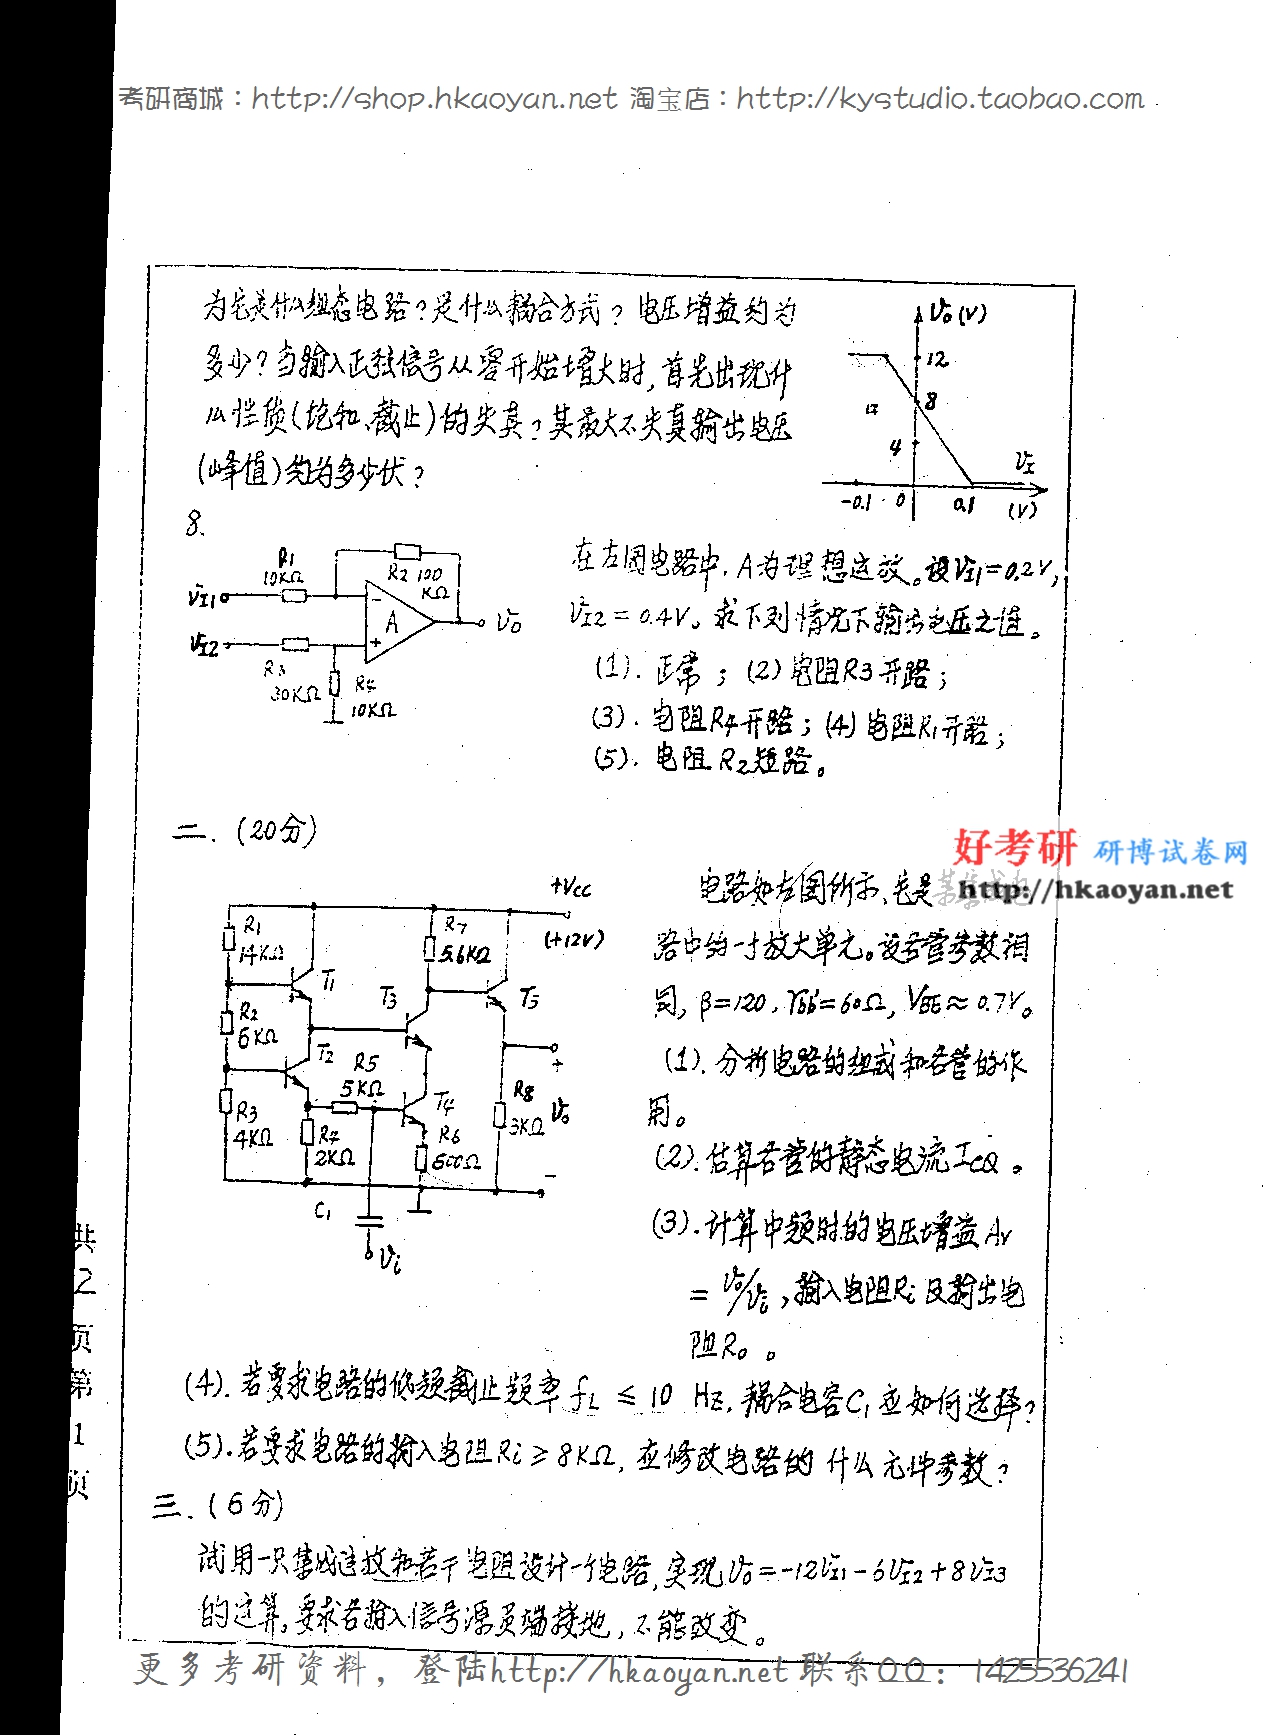 考研商城：http://shop.hkaoyan.net 淘宝店：http://kystudio.taobao.com
为它是什么组态电路？是什么耦合方式？电压增益约为
多少？当输入正弦信号从零开始增大时，首先出现什
么性质(饱和、截止)的失真？其最大不失真输出电压
(峰值)约为多少伏？
υo(V)
12
8
4
υI
-0.1 0 0.1 (V)
8.
R1
10KΩ
R2 100
KΩ
υI1
A
υo
υI2
R3
30KΩ
R4
10KΩ
在左图电路中，A为理想运放。设υI1=0.2V，
υI2=0.4V。求下列情况下输出电压之值。
(1).正常；(2)电阻R3开路；
(3).电阻R4开路；(4)电阻R1开路；
(5).电阻R2短路。
二.(20分)
好考研 研博试卷网
http://hkaoyan.net
+VCC
(+12V)
R1
14KΩ
R7
5.6KΩ
T1
T3
T5
R2
6KΩ
T2
R5
5KΩ
R3
4KΩ
R4
2KΩ
T4
R6
500Ω
R8
3KΩ
+
υo
-
C1
υi
电路如左图所示，它是
路中的一个放大单元。设各管参数相
同，β=120，rbb'=60Ω，VBE≈0.7V。
(1).分析电路的组成和各管的作
用。
(2).估算各管的静态电流ICQ。
(3).计算中频时的电压增益Av
=υo/υi，输入电阻Ri及输出电
阻Ro。
(4).若要求电路的低频截止频率fL≤10 Hz，耦合电容C1应如何选择？
(5).若要求电路的输入电阻Ri≥8KΩ，应修改电路的什么元件参数？
三.(6分)
试用一只集成运放和若干电阻设计一个电路，实现υo=-12υI1-6υI2+8υI3
的运算，要求各输入信号源负端接地，不能改变。
共
2
页
第
1
页
更多考研资料，登陆http://hkaoyan.net 联系QQ：1425536241